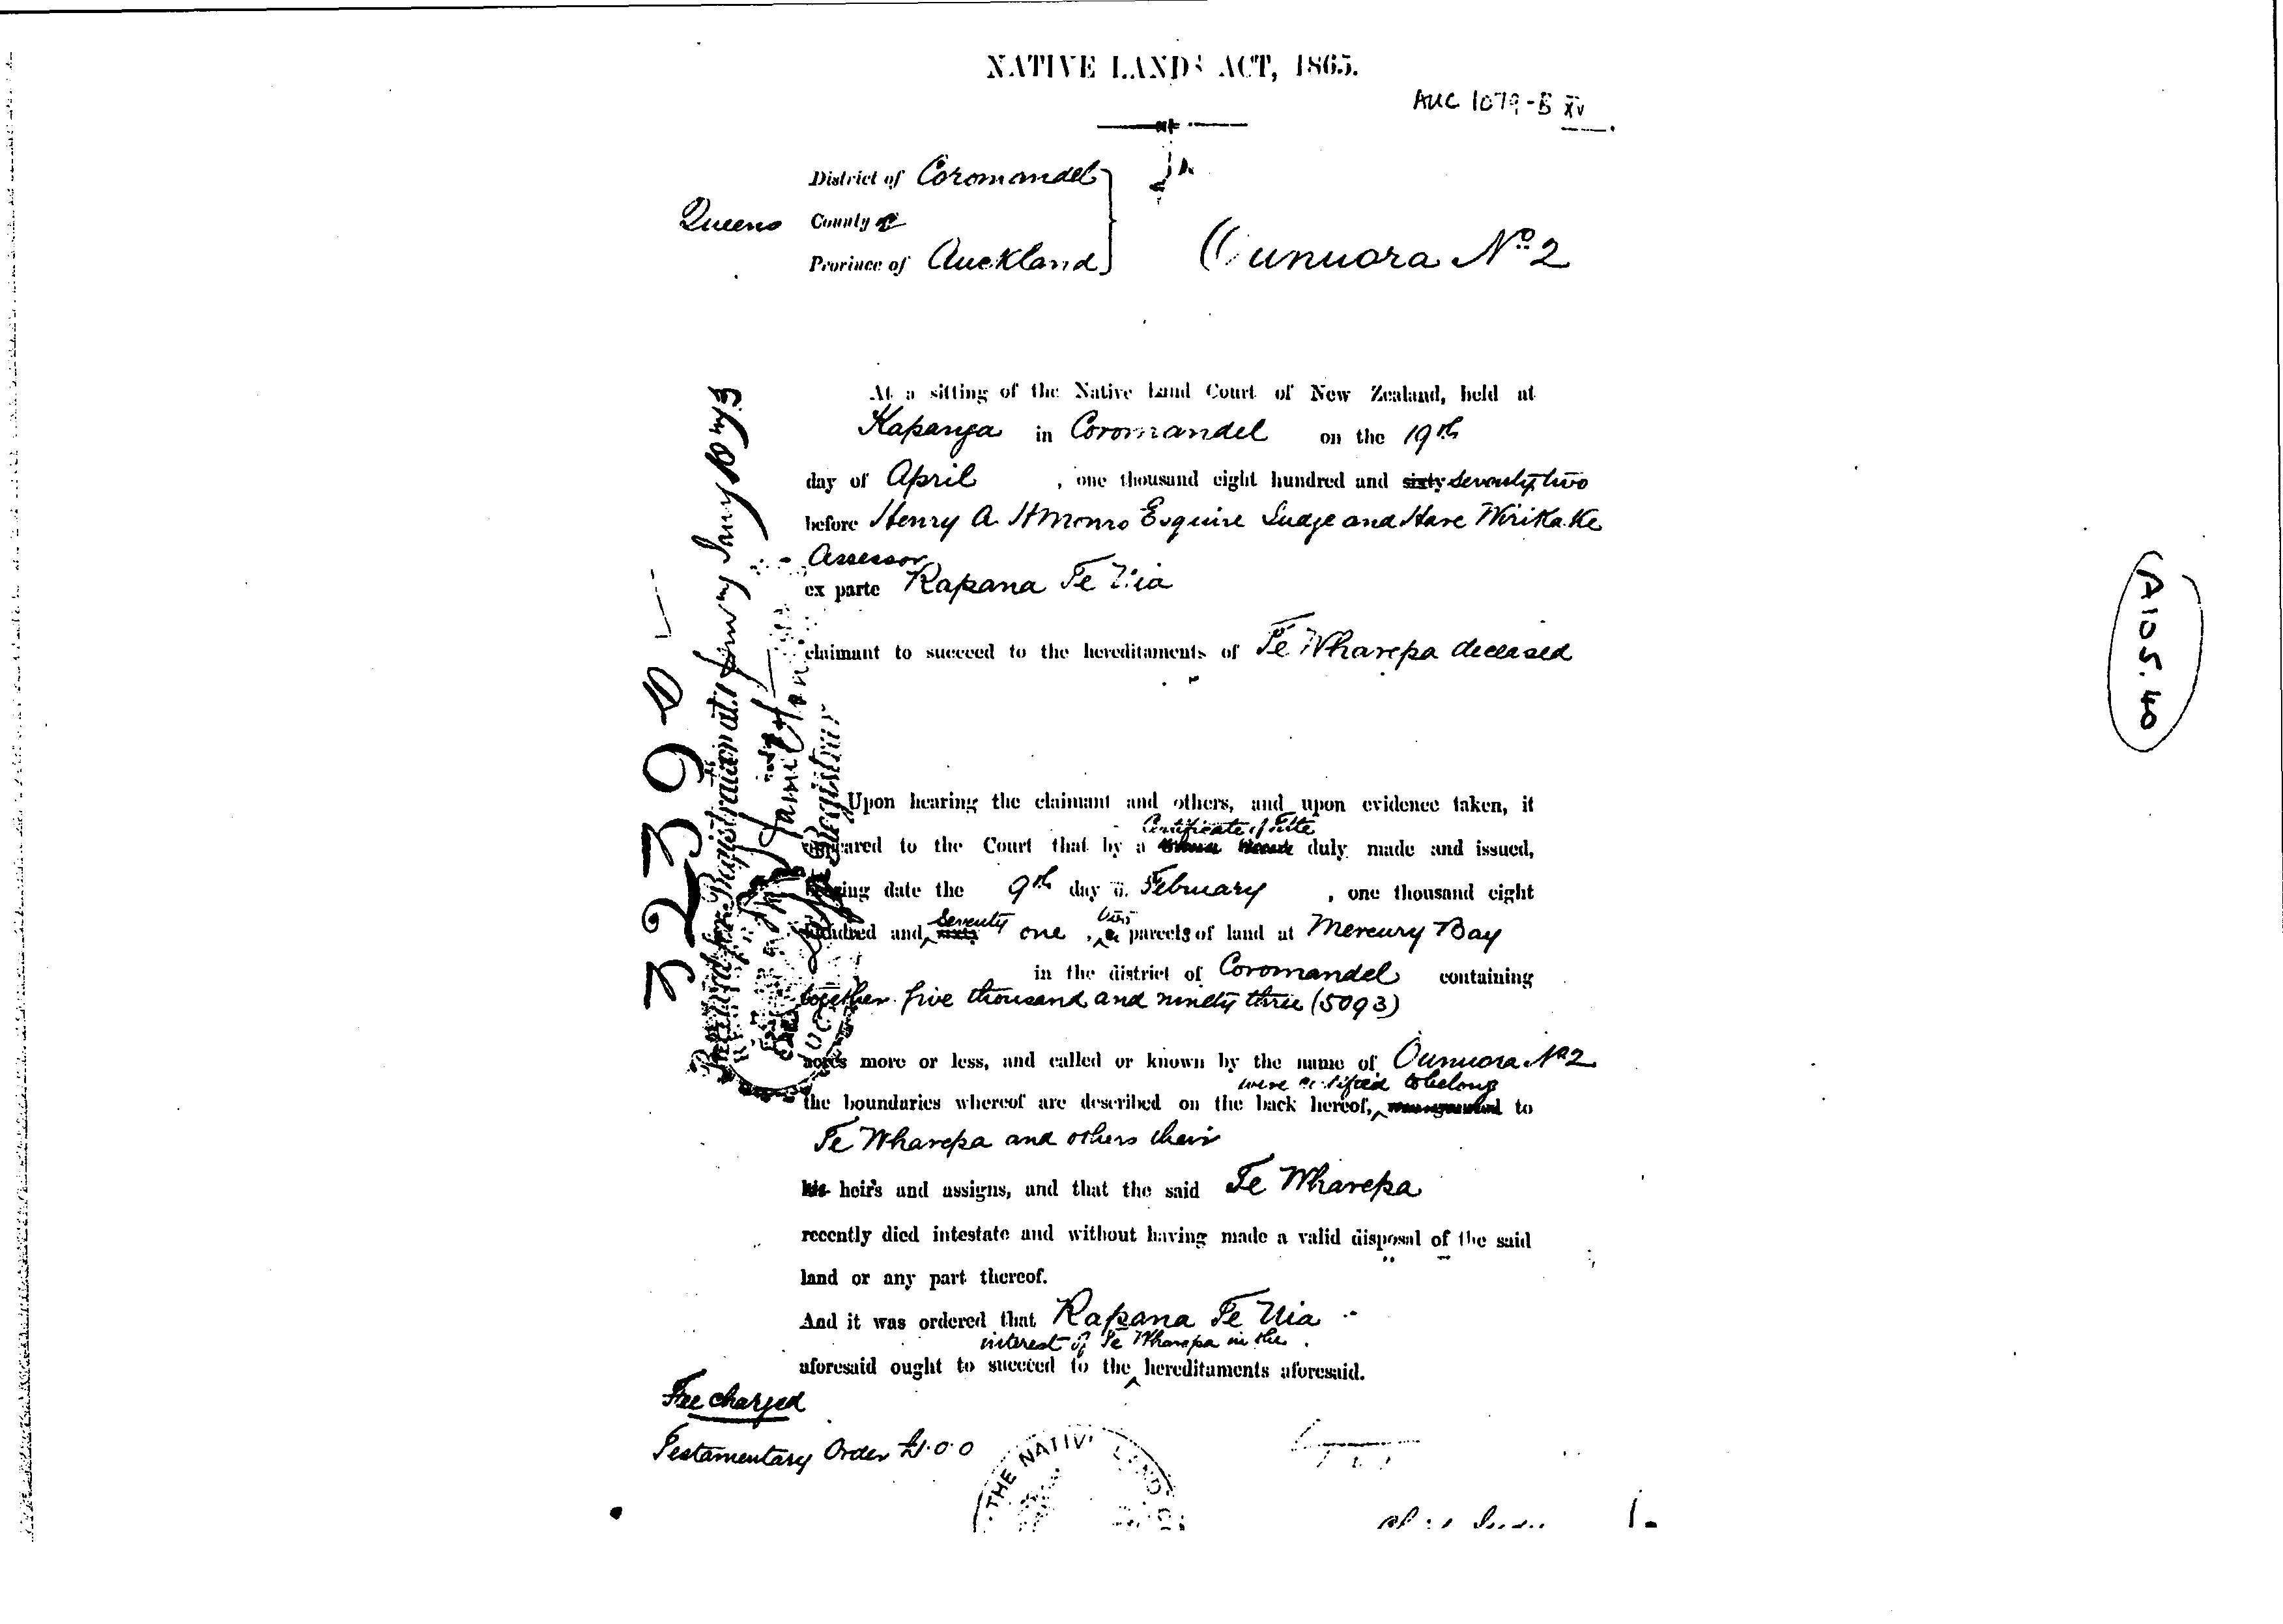 NATIVE LANDS ACT, 1865.
AUC 1079-B XV
District of Coromandel
Queens County
Province of Auckland
Ounuora No. 2
At a sitting of the Native Land Court of New Zealand, held at
Kapanga in Coromandel on the 19th
day of April , one thousand eight hundred and sixty seventy two
before Henry A. H Monro Esquire Judge and Hare Wirikake
Assessor
ex parte Rapana Te Uia
claimant to succeed to the hereditaments of Te Wharepa deceased
Upon hearing the claimant and others, and upon evidence taken, it
Certificate of Title
appeared to the Court that by a duly made and issued,
bearing date the 9th day of February , one thousand eight
seventy two
hundred and sixty one , a parcels of land at Mercury Bay
in the district of Coromandel containing
together five thousand and ninety three (5093)
acres more or less, and called or known by the name of Ounuora No 2
were certified to belong
the boundaries whereof are described on the back hereof, to
Te Wharepa and others their
his heirs and assigns, and that the said Te Wharepa
recently died intestate and without having made a valid disposal of the said
land or any part thereof.
And it was ordered that Rapana Te Uia
interest of Te Wharepa in the
aforesaid ought to succeed to the hereditaments aforesaid.
Fee charged
Testamentary Order £1.0.0
THE NATIVE LAND
3239
Registrar
A105.40